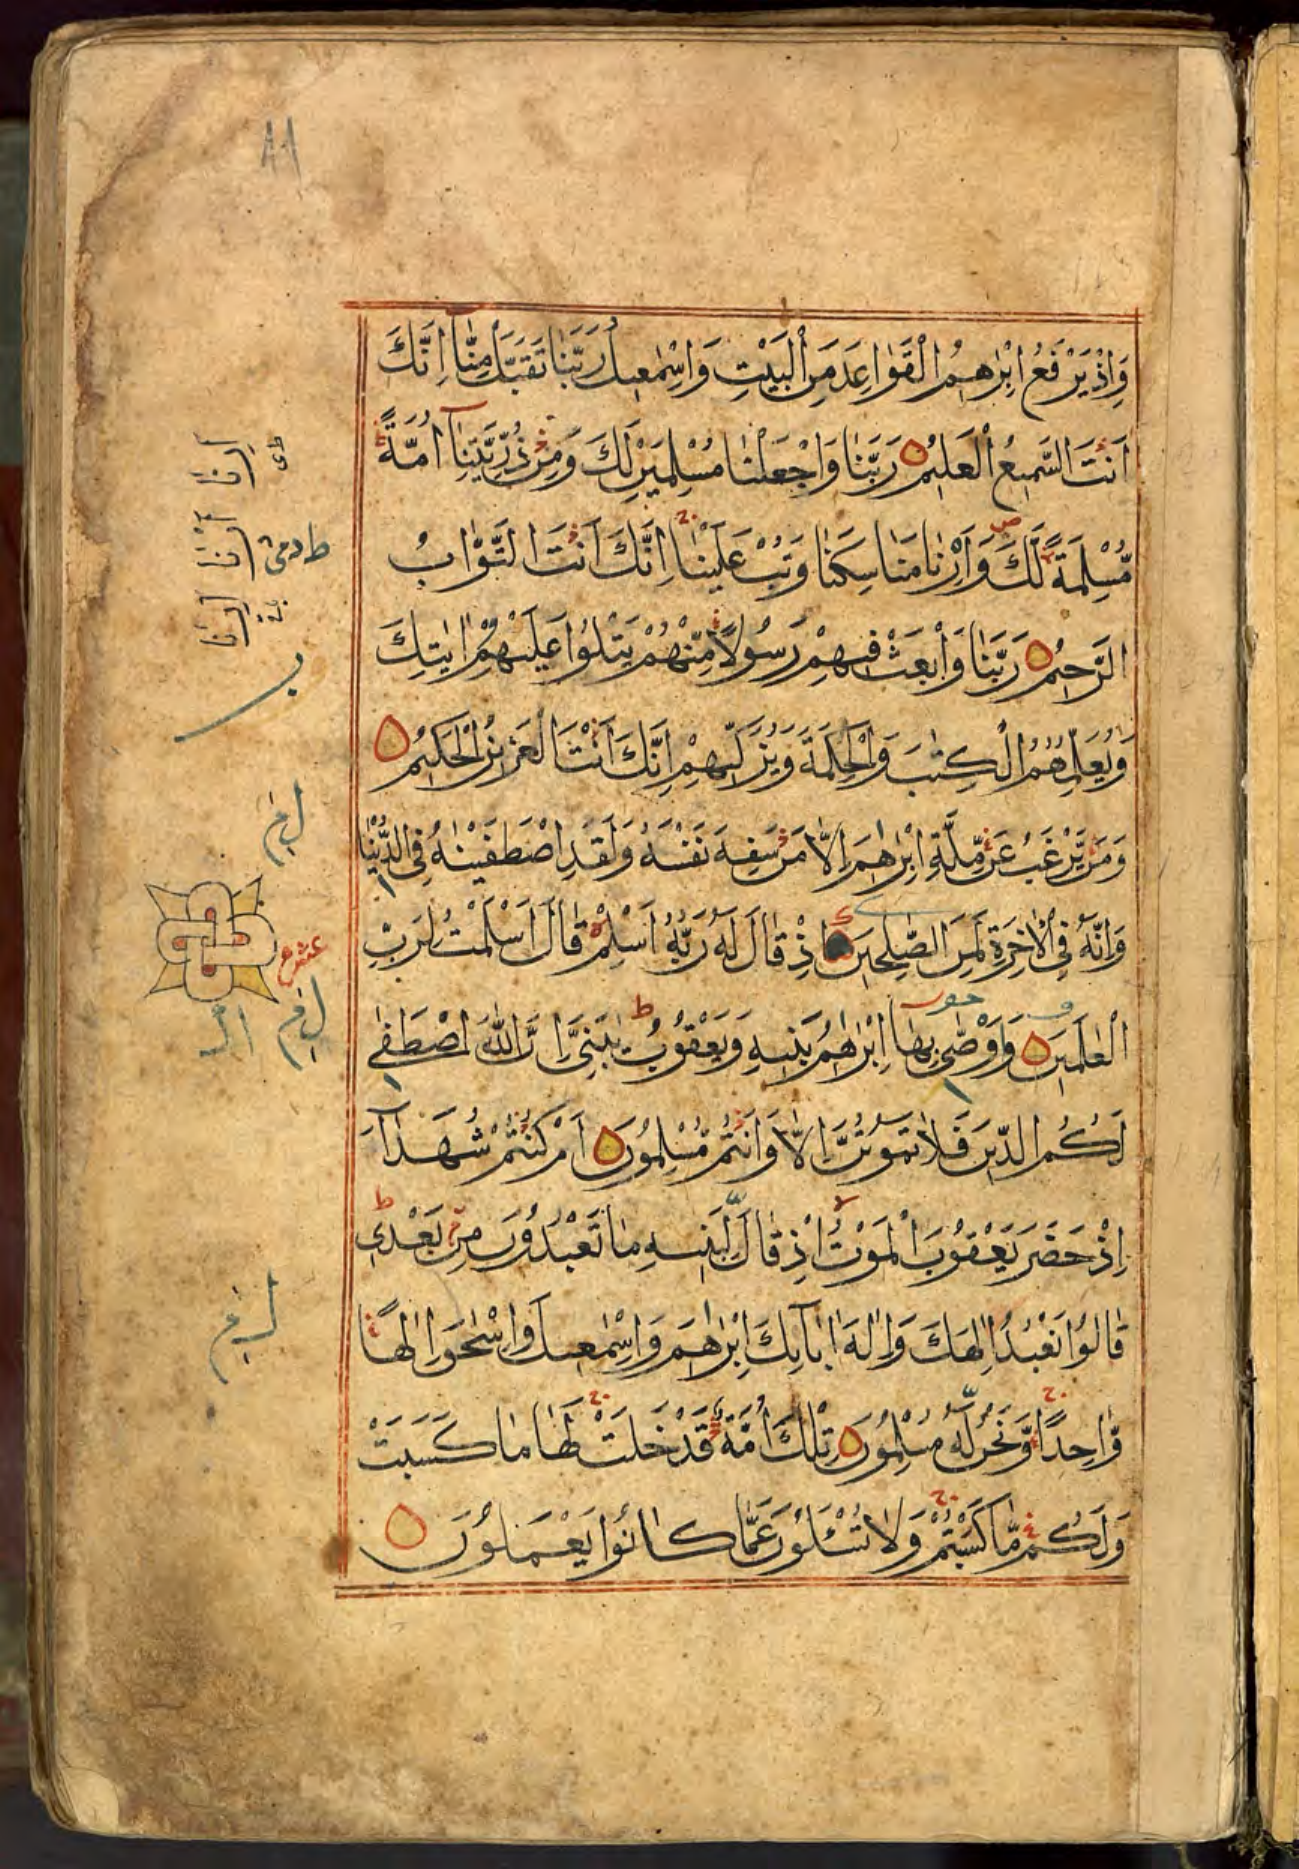 وَاِذْ يَرْفَعُ اِبْرٰهٖمُ الْقَوَاعِدَ مِنَ الْبَيْتِ وَاِسْمٰعِيلُ رَبَّنَا تَقَبَّلْ مِنَّا اِنَّكَ
اَنْتَ السَّمِيعُ الْعَلِيمُ رَبَّنَا وَاجْعَلْنَا مُسْلِمَيْنِ لَكَ وَمِنْ ذُرِّيَّتِنَآ اُمَّةً
مُّسْلِمَةً لَّكَ وَاَرِنَا مَنَاسِكَنَا وَتُبْ عَلَيْنَا اِنَّكَ اَنْتَ التَّوَّابُ
الرَّحِيمُ رَبَّنَا وَابْعَثْ فِيهِمْ رَسُولًا مِّنْهُمْ يَتْلُوا عَلَيْهِمْ اٰيٰتِكَ
وَيُعَلِّمُهُمُ الْكِتٰبَ وَالْحِكْمَةَ وَيُزَكِّيهِمْ اِنَّكَ اَنْتَ الْعَزِيزُ الْحَكِيمُ
وَمَنْ يَّرْغَبُ عَنْ مِّلَّةِ اِبْرٰهٖمَ اِلَّا مَنْ سَفِهَ نَفْسَهُ وَلَقَدِ اصْطَفَيْنٰهُ فِى الدُّنْيَا
وَاِنَّهُ فِى الْاٰخِرَةِ لَمِنَ الصّٰلِحِينَ اِذْ قَالَ لَهُ رَبُّهُ اَسْلِمْ قَالَ اَسْلَمْتُ لِرَبِّ
الْعٰلَمِينَ وَوَصّٰى بِهَا اِبْرٰهٖمُ بَنِيهِ وَيَعْقُوبُ يٰبَنِىَّ اِنَّ اللّٰهَ اصْطَفٰى
لَكُمُ الدِّينَ فَلَا تَمُوتُنَّ اِلَّا وَاَنْتُمْ مُّسْلِمُونَ اَمْ كُنْتُمْ شُهَدَآءَ
اِذْ حَضَرَ يَعْقُوبَ الْمَوْتُ اِذْ قَالَ لِبَنِيهِ مَا تَعْبُدُونَ مِنْ بَعْدِى
قَالُوا نَعْبُدُ اِلٰهَكَ وَاِلٰهَ اٰبَآئِكَ اِبْرٰهٖمَ وَاِسْمٰعِيلَ وَاِسْحٰقَ اِلٰهًا
وَّاحِدًا وَّنَحْنُ لَهُ مُسْلِمُونَ تِلْكَ اُمَّةٌ قَدْ خَلَتْ لَهَا مَا كَسَبَتْ
وَلَكُمْ مَّا كَسَبْتُمْ وَلَا تُسْـَٔلُونَ عَمَّا كَانُوا يَعْمَلُونَ
اَرِنَا
اَرْنَا
اَرِنَا
عشر